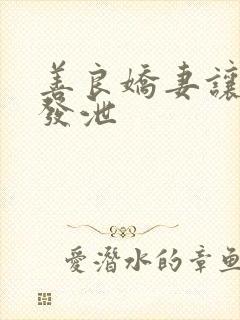 善良嬌妻讓
發泄
愛潛水的章魚